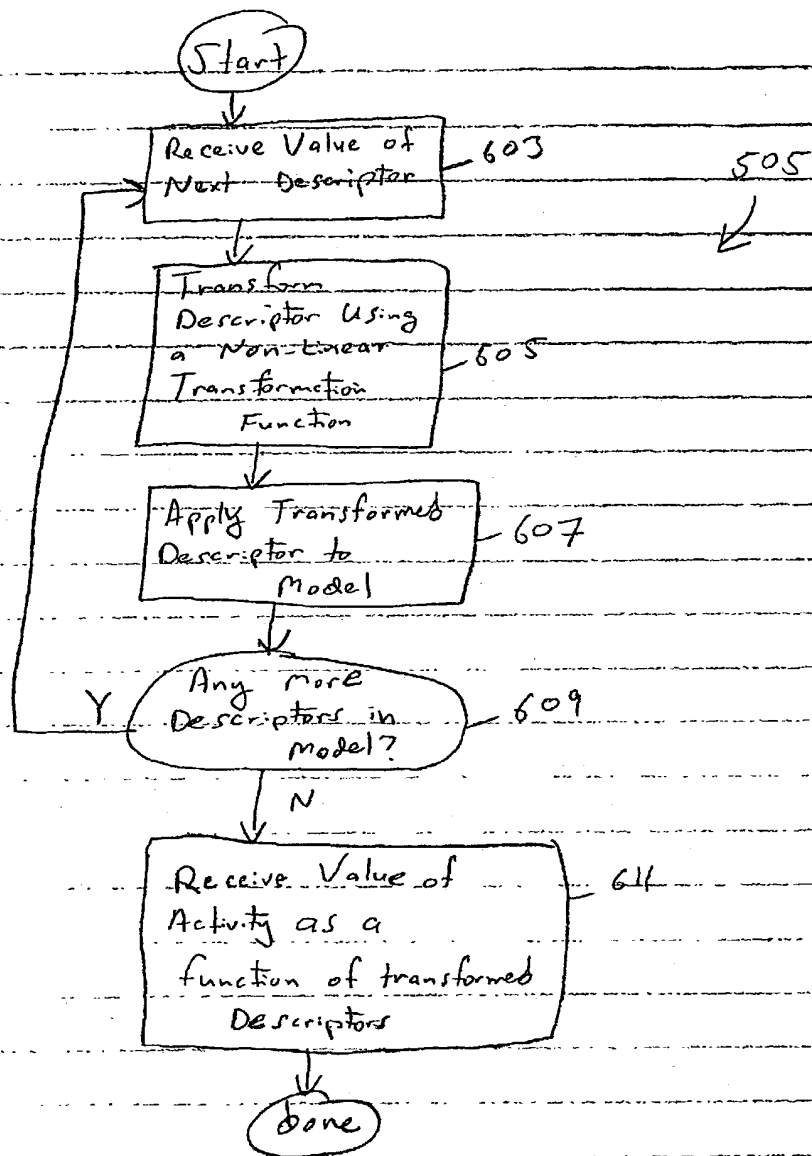 Start
Receive Value of
Next Descriptor
603
505
Transform
Descriptor Using
a Non-Linear
Transformction
Function
605
Apply Transformed
Descriptor to
Model
607
Any more
Descriptors in
Model?
609
Y
N
Receive Value of
Activity as a
function of transformed
Descriptors
611
Done